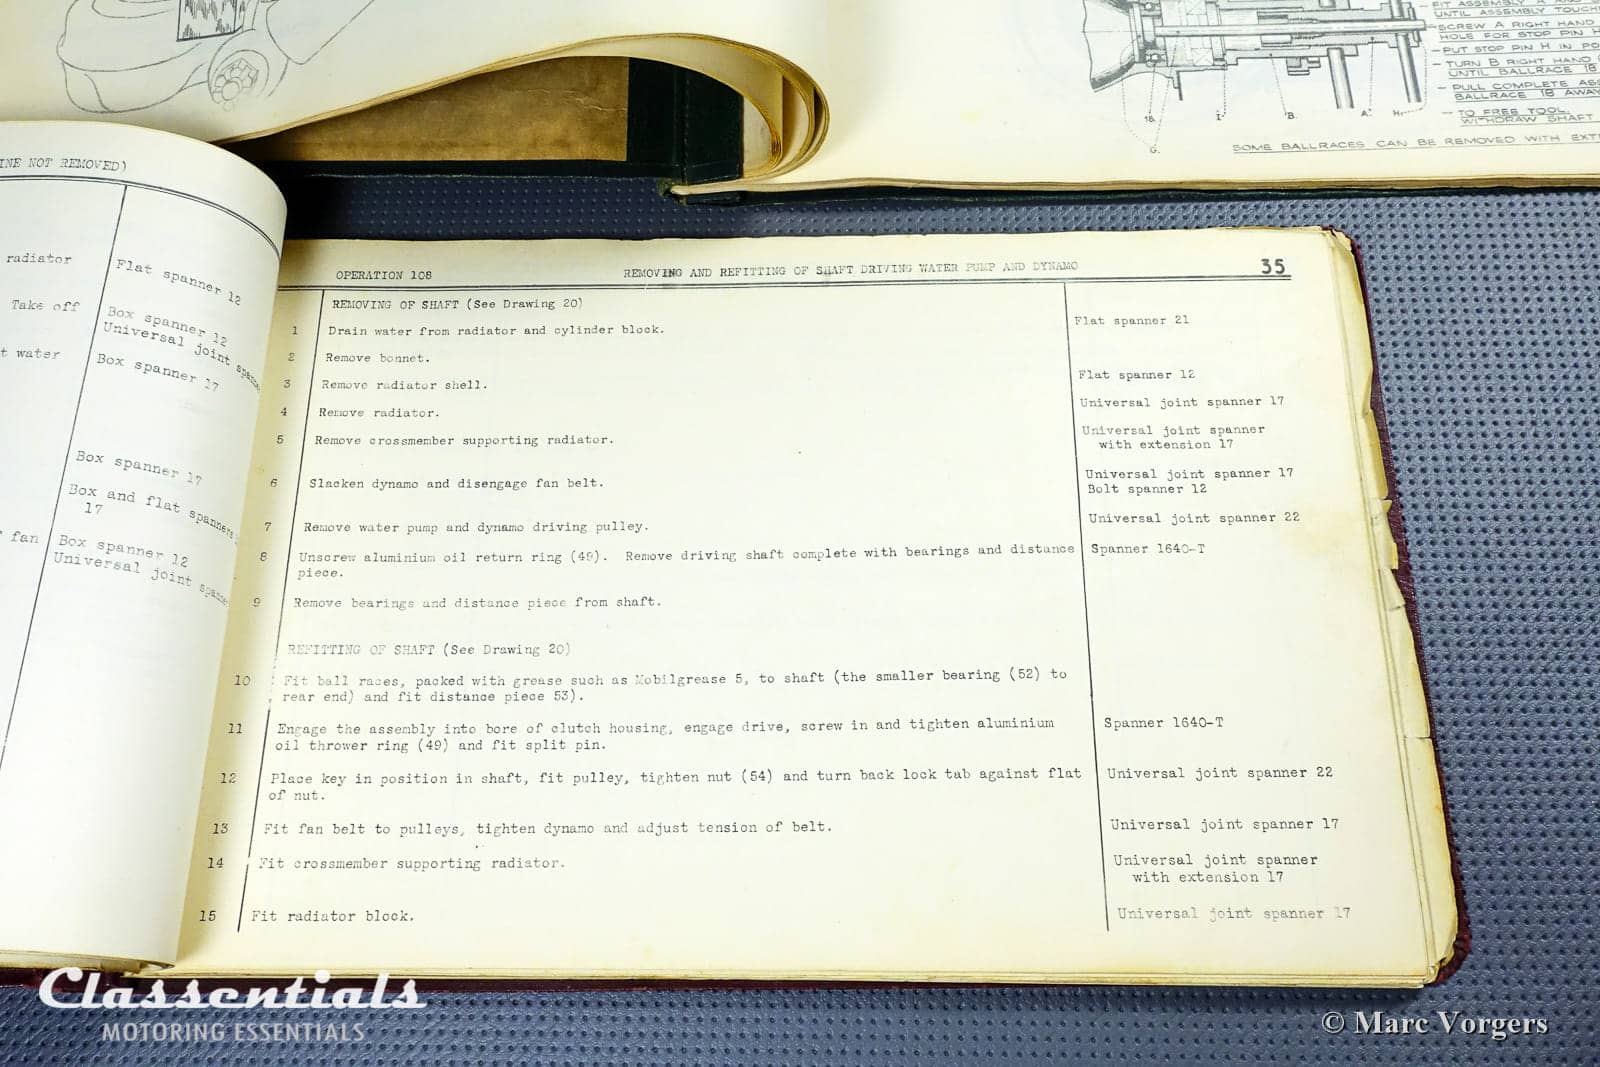 FIT ASSEMBLY A
UNTIL ASSEMBLY TOUCH
SCREW A RIGHT HAND
HOLE FOR STOP PIN H
PUT STOP PIN H IN PO
TURN B RIGHT HAND
UNTIL BALLRACE 18
PULL COMPLETE ASS
BALLRACE 18 AWAY
TO FREE TOOL.
WITHDRAW SHAFT
18. I. B. A. H.
G.
SOME BALLRACES CAN BE REMOVED WITH EXT
INE NOT REMOVED)
radiator
Flat spanner 12
Take off
Box spanner 12
Universal joint spanne
t water
Box spanner 17
Box spanner 17
Box and flat spanners
17
fan
Box spanner 12
Universal joint spanner
OPERATION 108 REMOVING AND REFITTING OF SHAFT DRIVING WATER PUMP AND DYNAMO 35
REMOVING OF SHAFT (See Drawing 20)
1 Drain water from radiator and cylinder block. Flat spanner 21
2 Remove bonnet.
3 Remove radiator shell. Flat spanner 12
4 Remove radiator. Universal joint spanner 17
5 Remove crossmember supporting radiator. Universal joint spanner
with extension 17
6 Slacken dynamo and disengage fan belt. Universal joint spanner 17
Bolt spanner 12
7 Remove water pump and dynamo driving pulley. Universal joint spanner 22
8 Unscrew aluminium oil return ring (49). Remove driving shaft complete with bearings and distance Spanner 1640-T
piece.
9 Remove bearings and distance piece from shaft.
REFITTING OF SHAFT (See Drawing 20)
10 Fit ball races, packed with grease such as Mobilgrease 5, to shaft (the smaller bearing (52) to
rear end) and fit distance piece 53).
11 Engage the assembly into bore of clutch housing, engage drive, screw in and tighten aluminium Spanner 1640-T
oil thrower ring (49) and fit split pin.
12 Place key in position in shaft, fit pulley, tighten nut (54) and turn back lock tab against flat Universal joint spanner 22
of nut.
13 Fit fan belt to pulleys, tighten dynamo and adjust tension of belt. Universal joint spanner 17
14 Fit crossmember supporting radiator. Universal joint spanner
with extension 17
15 Fit radiator block. Universal joint spanner 17
Classentials
MOTORING ESSENTIALS
© Marc Vorgers